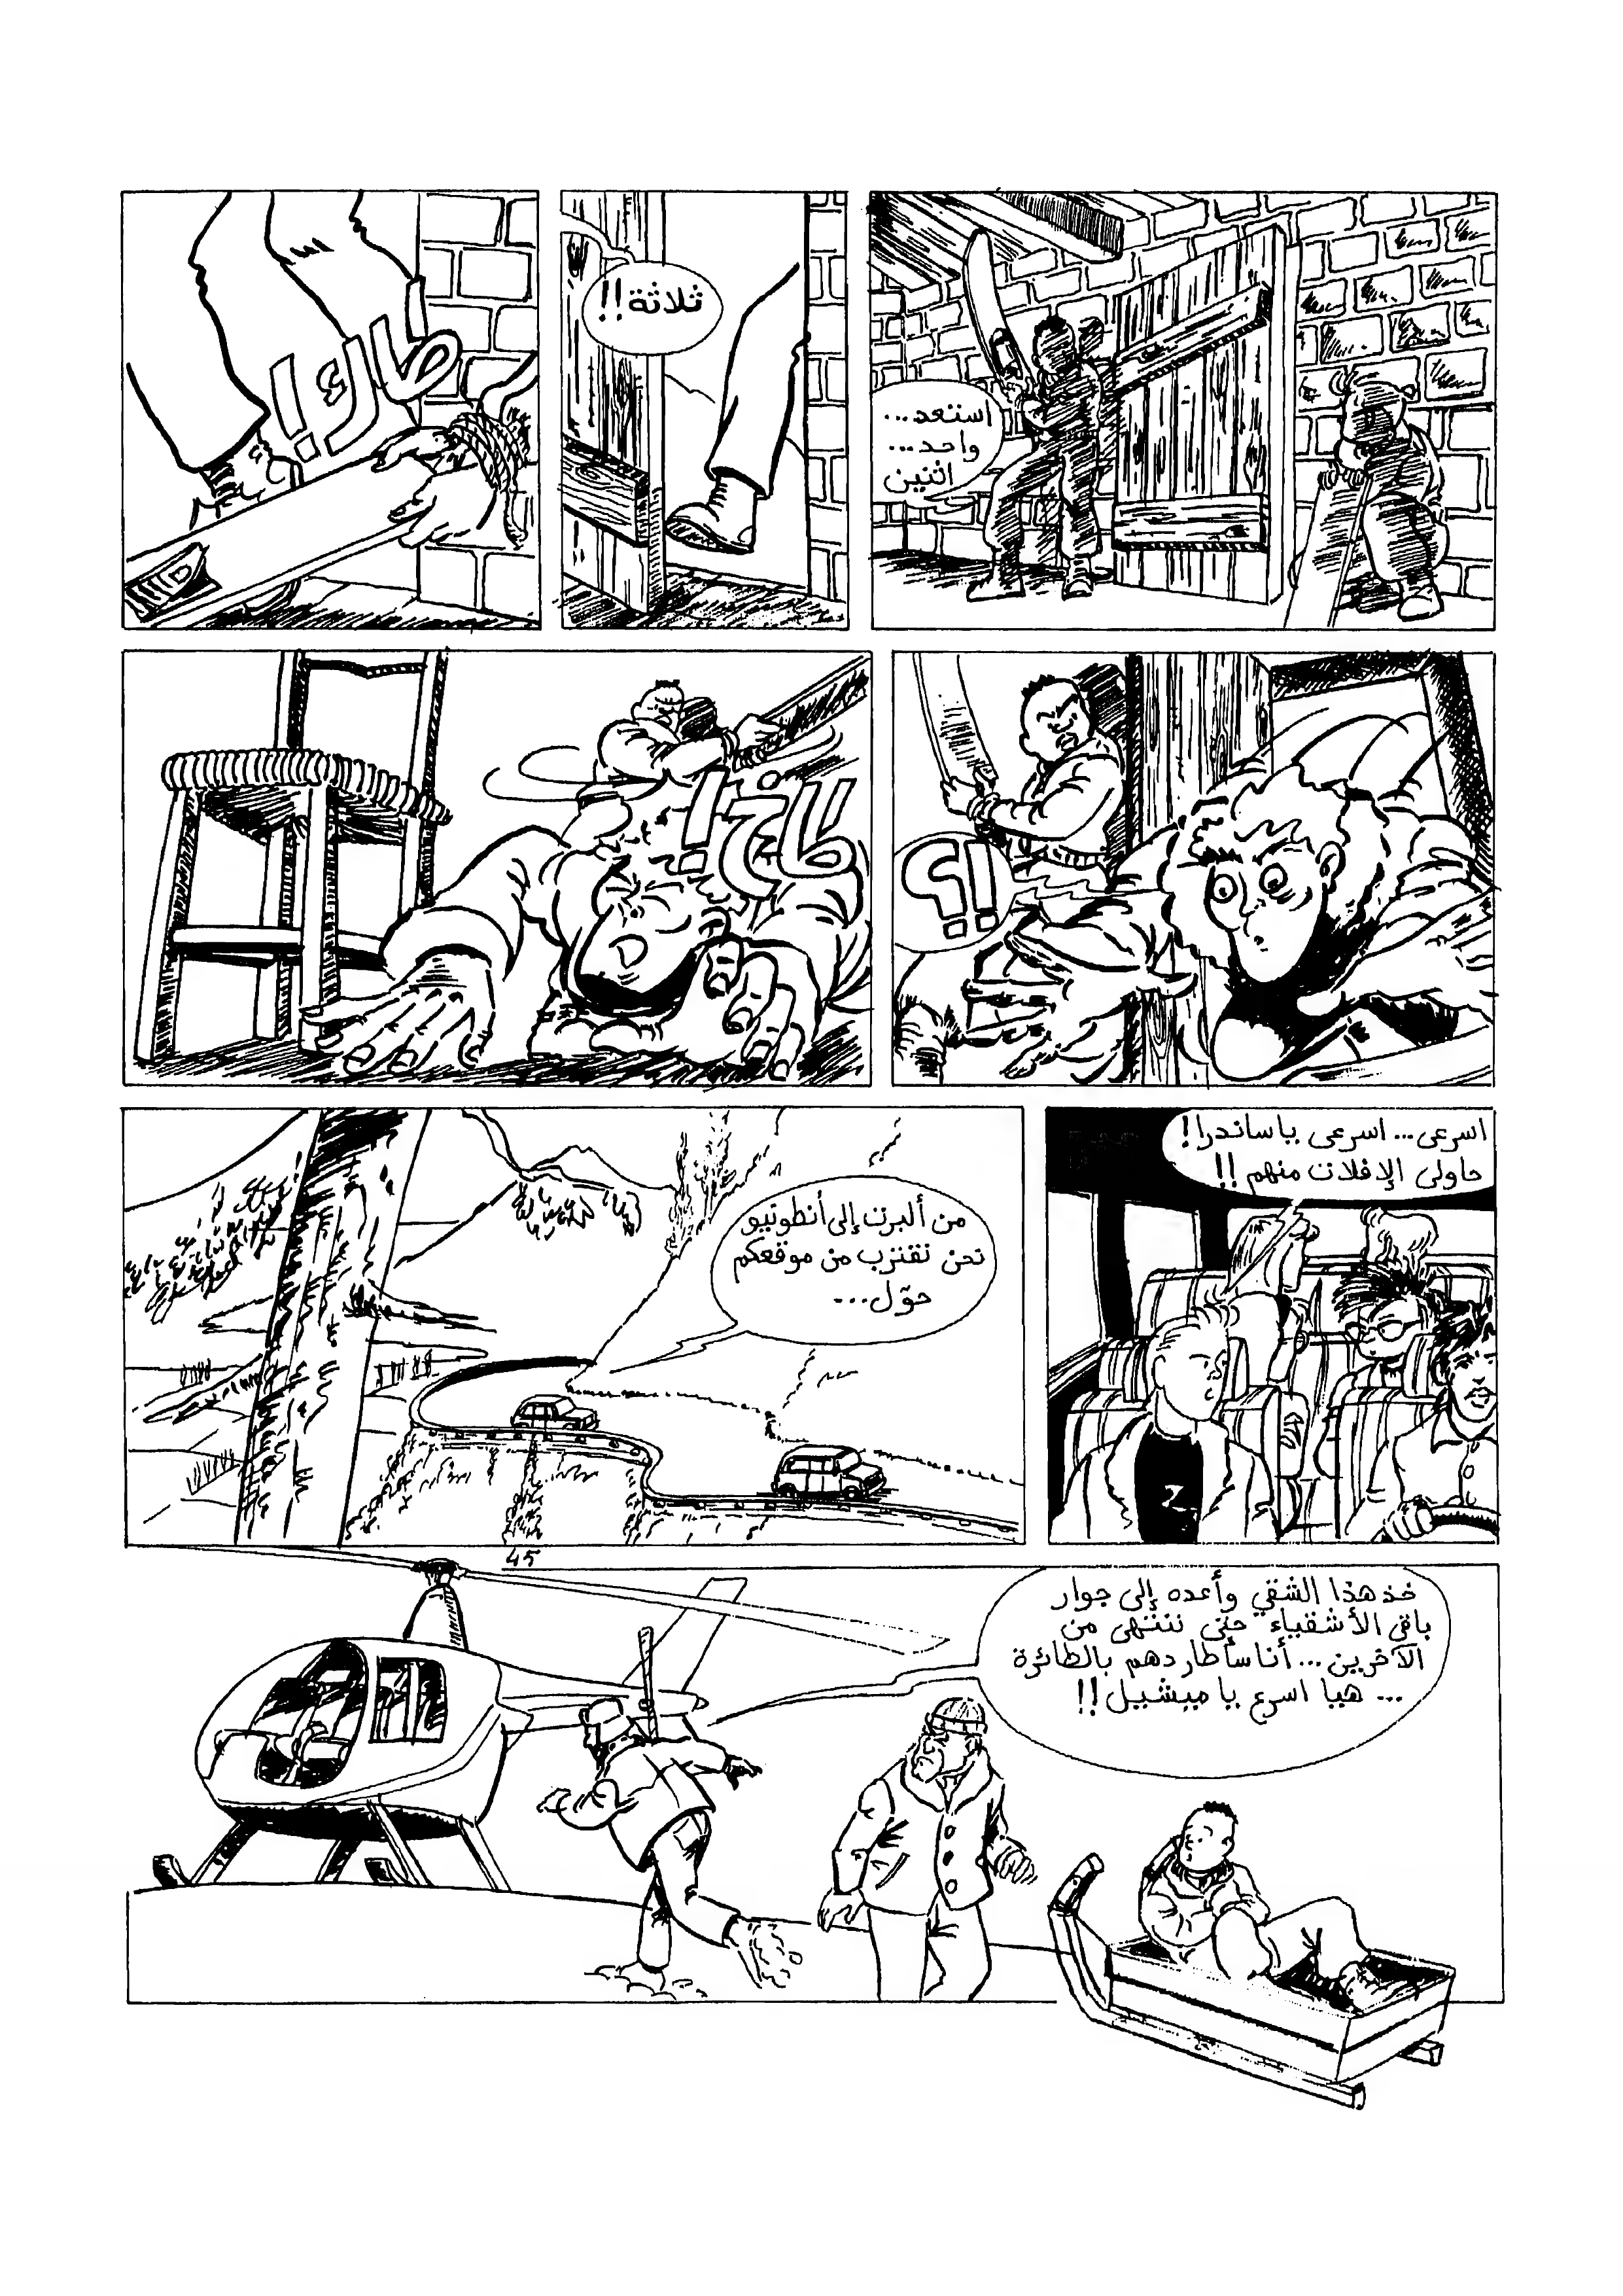 استعد...
واحد...
اثنين
ثلاثة!!
طاك!
!؟
طاخ!
اسرعى... اسرعى ياساندرا!
حاولى الإفلات منهم!!
من ألبرت إلى أنطونيو
نحن نقترب من موقعكم
حوّل...
45
خذ هذا الشقي وأعده إلى جوار
باقي الأشقياء حتى ننتهى من
الآخرين... أنا سأطاردهم بالطائرة
... هيا اسرع يا ميشيل!!